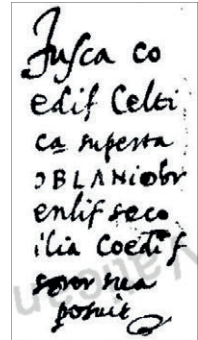 Fusca co
edif Celti
ca supesta
ƆBLANiobr
enlif seco
ilia Coedif
soror sua
posuit